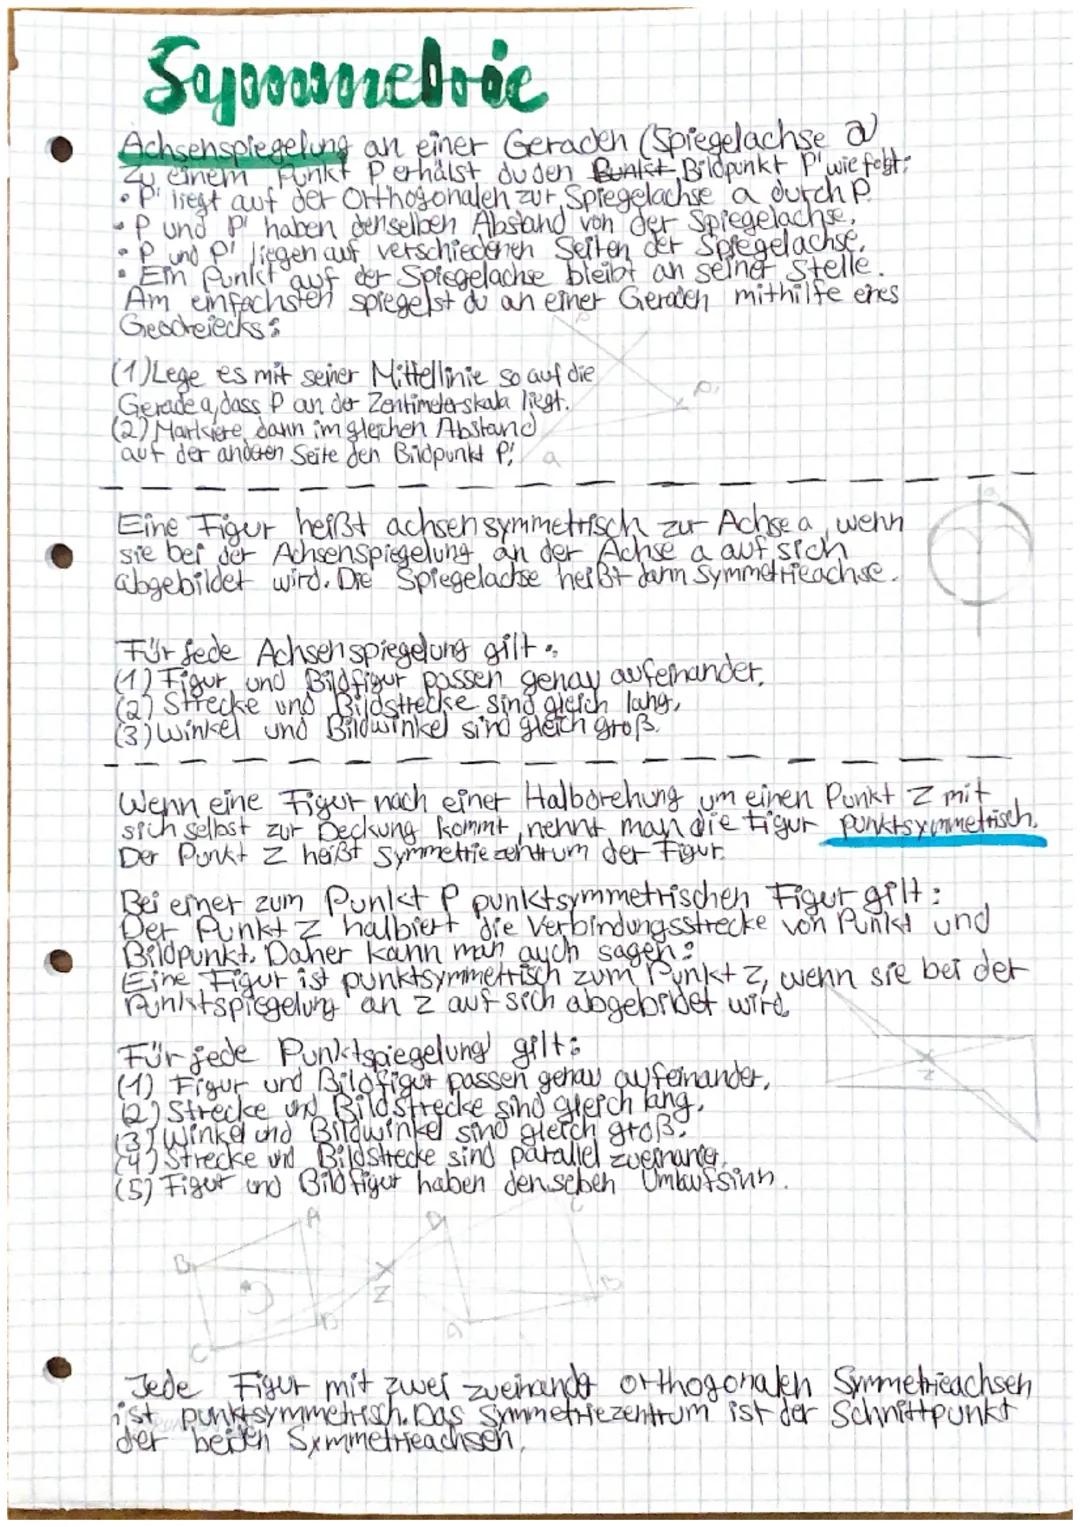 Symmetrie
Achsenspiegelung an einer Geraden (Spiegelachse a)
Zu einem Punkt P erhälst du den Punkt Bildpunkt P' wie folgt:
• P' liegt auf der Orthogonalen zur Spiegelachse a durch P.
• P und P' haben denselben Abstand von der Spiegelachse.
• P und P' liegen auf verschiedenen Seiten der Spiegelachse.
• Ein Punkt auf der Spiegelachse bleibt an seiner Stelle.
Am einfachsten spiegelst du an einer Geraden mithilfe eines
Geodreiecks:
(1) Lege es mit seiner Mittellinie so auf die
Gerade a, dass P an der Zentimeterskala liegt.
(2) Markiere dann im gleichen Abstand
auf der anderen Seite den Bildpunkt P'.
P
P'
a
Eine Figur heißt achsensymmetrisch zur Achse a, wenn
sie bei der Achsenspiegelung an der Achse a auf sich
abgebildet wird. Die Spiegelachse heißt dann Symmetrieachse.
a
Für jede Achsenspiegelung gilt:
(1) Figur und Bildfigur passen genau aufeinander,
(2) Strecke und Bildstrecke sind gleich lang,
(3) Winkel und Bildwinkel sind gleich groß.
Wenn eine Figur nach einer Halbdrehung um einen Punkt Z mit
sich selbst zur Deckung kommt, nennt man die Figur punktsymmetrisch.
Der Punkt Z heißt Symmetriezentrum der Figur.
Bei einer zum Punkt P punktsymmetrischen Figur gilt:
Der Punkt Z halbiert die Verbindungsstrecke von Punkt und
Bildpunkt. Daher kann man auch sagen:
Eine Figur ist punktsymmetrisch zum Punkt Z, wenn sie bei der
Punktspiegelung an Z auf sich abgebildet wird.
Z
Für jede Punktspiegelung gilt:
(1) Figur und Bildfigur passen genau aufeinander,
(2) Strecke und Bildstrecke sind gleich lang,
(3) Winkel und Bildwinkel sind gleich groß.
(4) Strecke und Bildstrecke sind parallel zueinander.
(5) Figur und Bildfigur haben denselben Umlaufsinn.
A
D
C
B
Z
B
D
A
C
Jede Figur mit zwei zueinander orthogonalen Symmetrieachsen
ist punktsymmetrisch. Das Symmetriezentrum ist der Schnittpunkt
der beiden Symmetrieachsen.